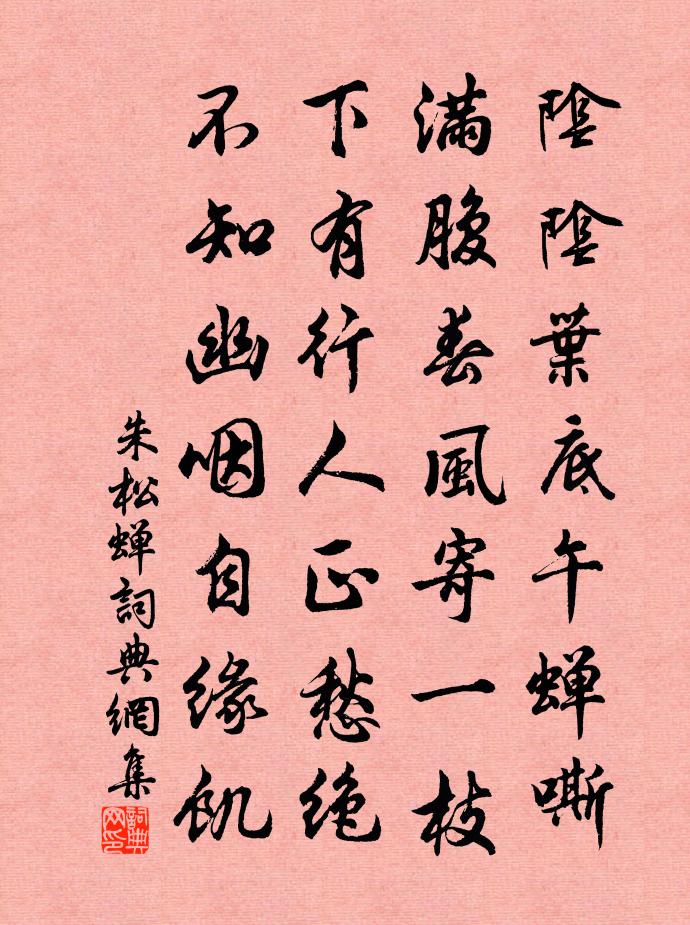 陰陰葉底午蟬嘶
滿腹春風寄一枝
下有行人正愁絶
不知幽咽自緣飢
朱松蟬詞典網集
詞典網印